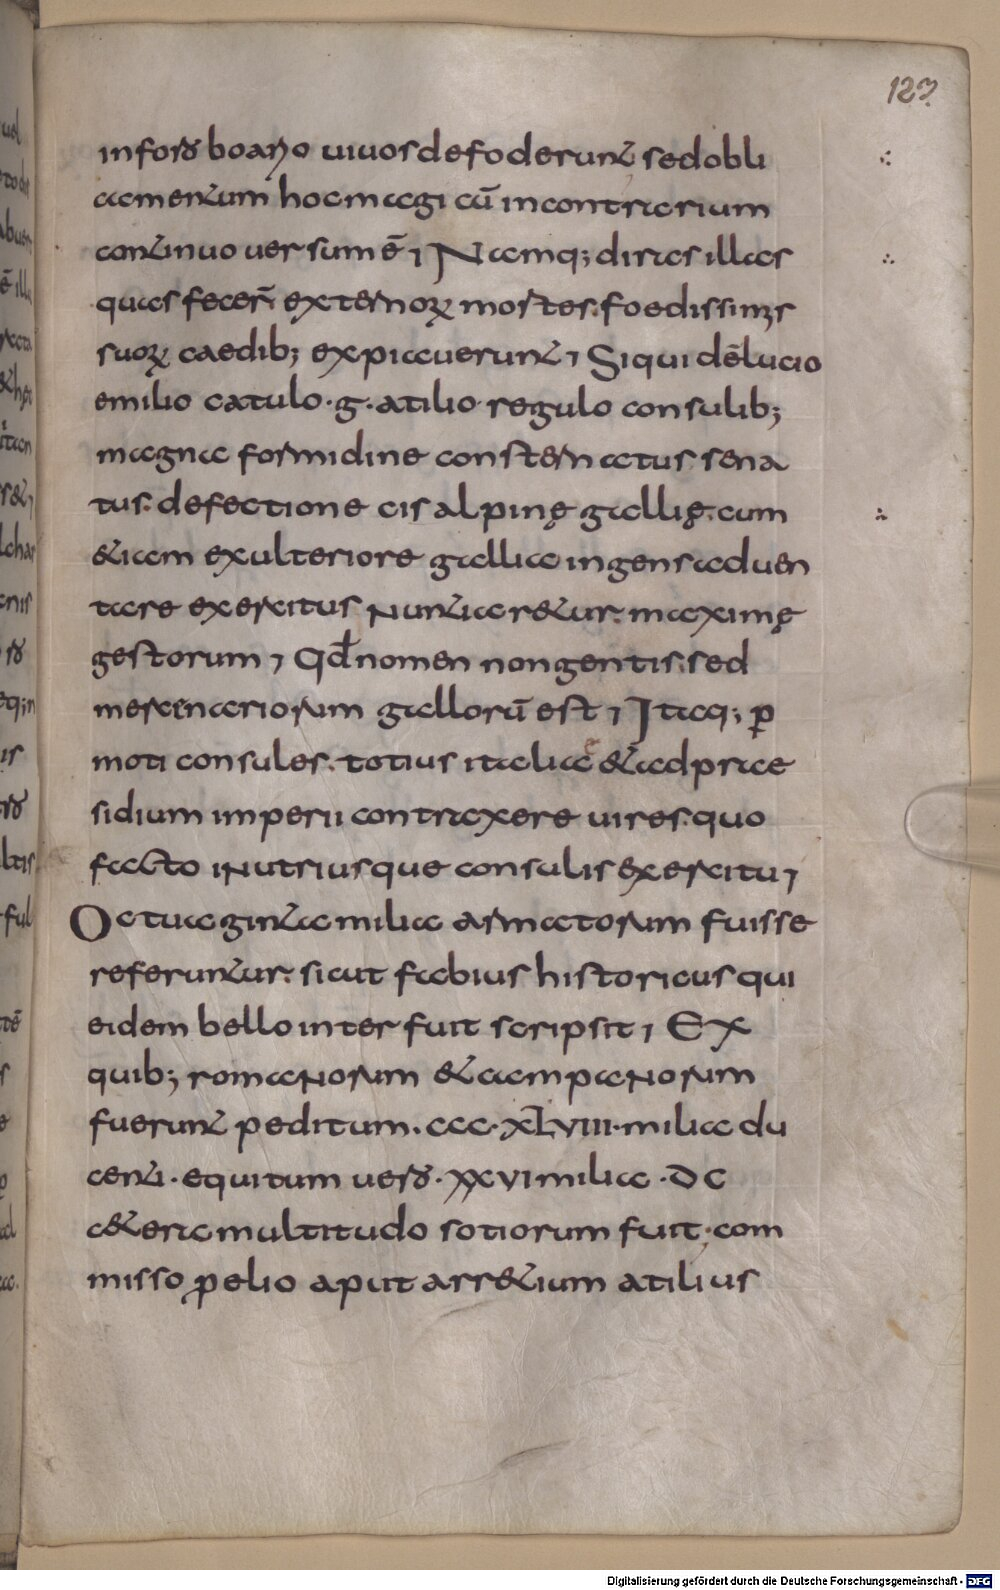 123
in foro boario uiuos defoderunt sed obli
amentum hoc magi cū in contrarium
continuo uersum ē ⁊ Namq; diras illas
quas fecer̄ externoꝝ mortes. foedissimis
suoꝝ caedib; expiauerunt ⁊ Siqui dēlucio
emilio catulo · g · atilio regulo consulib;
magna formidine consternatus sena
tus. defectione cisalpinę gallię. cum
&iam ex ulteriore gallia ingens aduen
tare exercitus nuntiar&ur. maximę
gestorum ⁊ Qd̄ nomen non gentis. sed
mercennariorum gallorū est ⁊ Itaq; ꝑ
moti consules. totius italiae & ad prae
sidium imperii contraxere uires. quo
facto in utriusque consulis exercitu ⁊
Octuaginta milia armatorum fuisse
referuntur. sicut fabius historicus qui
eidem bello interfuit scripsit ⁊ Ex
quib; romanorum & campanorum
fuerunt peditum. ccc. xLviii. milia du
centi · equitum uero · xxvi milia · DC
c&era multitudo sotiorum fuit. com
misso ꝓelio aput arr&ium atilius
Digitalisierung gefördert durch die Deutsche Forschungsgemeinschaft - DFG